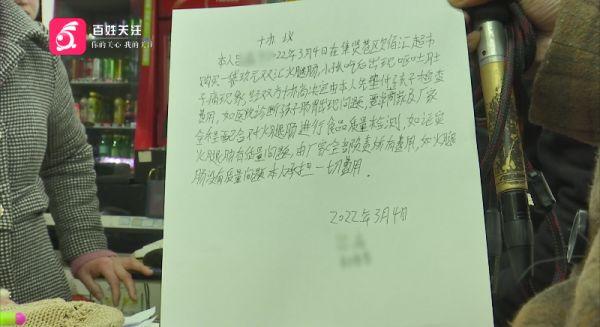 百姓关注
你的关心 我的关注
协议
本人 2022年3月4日在集贤巷区佰汇超市
购买一袋玖玖双汇火腿肠,小孩吃后出现呕吐肚
子痛现象,经双方协商决定由本人先垫付孩子检查
费用,如医院诊断孩子胃肠出现问题,要求商家及厂家
全程配合对火腿肠进行食品质量检测,如运定
火腿肠有质量问题,由厂家全部负责所有费用,如火腿
肠没有质量问题本人承担一切费用。
2022年3月4日